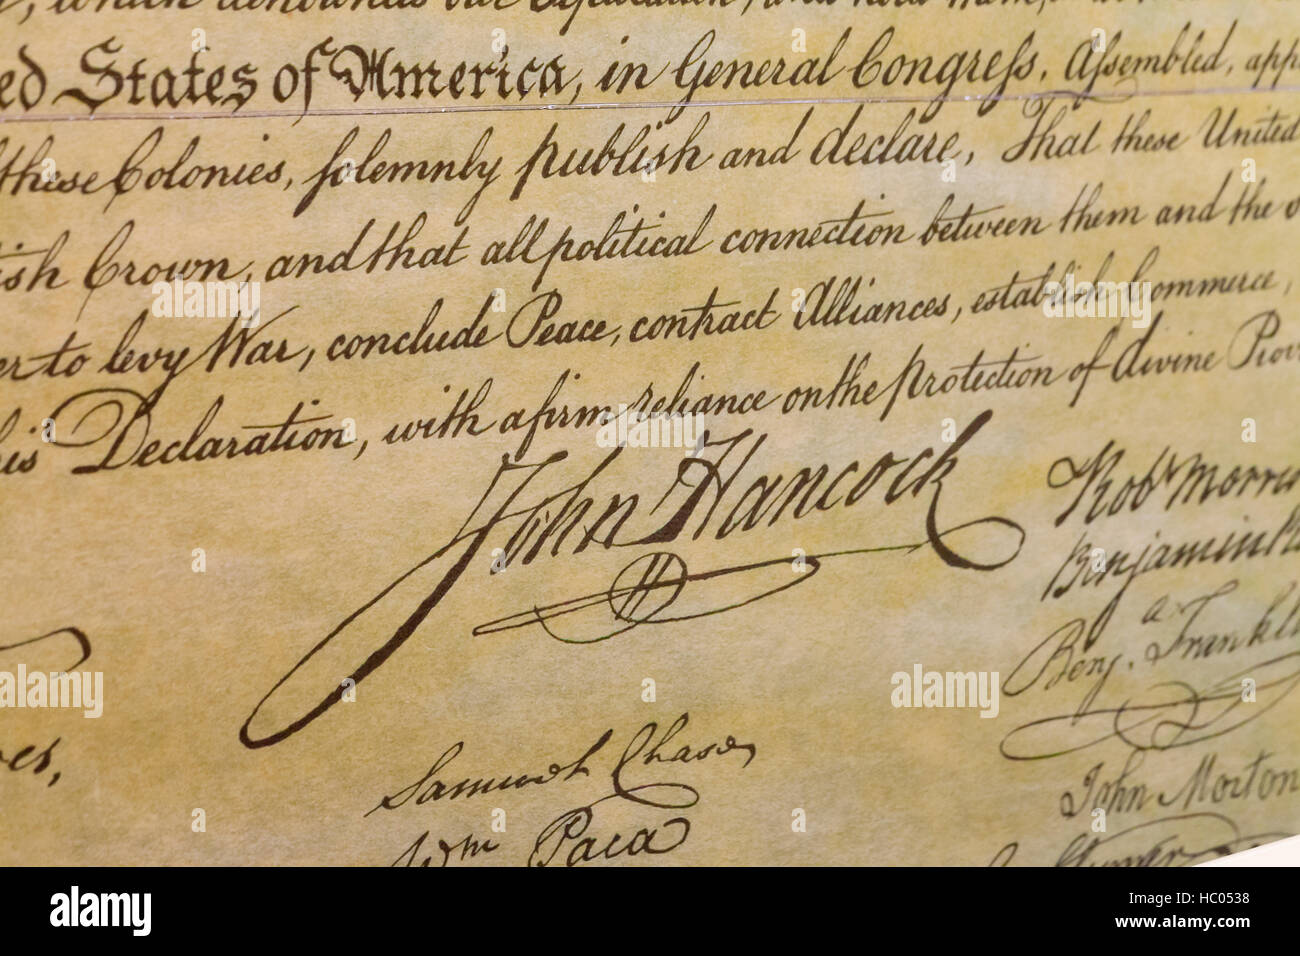 which denounces our Separation, and hold them,
ed States of America, in General Congress, Assembled, app
these Colonies, solemnly publish and declare, That these United
ish Crown, and that all political connection between them and the
er to levy War, conclude Peace, contract Alliances, establish Commerce,
his Declaration, with a firm reliance on the protection of divine Prov
John Hancock
Robt Morris
Benjamin
Benja. Frankli
Samuel Chase
John Morton
Wm Paca
alamy
a
alamy
Image ID: HC0538
www.alamy.com